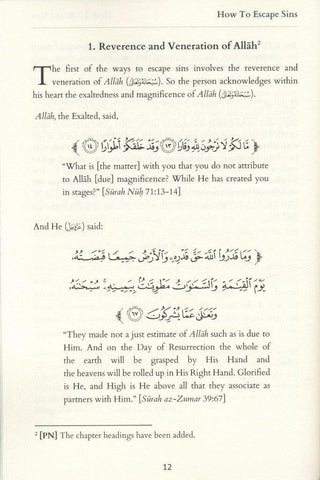 How To Escape Sins
1. Reverence and Veneration of Allāh²
The first of the ways to escape sins involves the reverence and
veneration of Allāh (سُبْحَانَهُ وَتَعَالَى). So the person acknowledges within
his heart the exaltedness and magnificence of Allāh (سُبْحَانَهُ وَتَعَالَى).
Allāh, the Exalted, said,
﴿ مَّا لَكُمْ لَا تَرْجُونَ لِلَّهِ وَقَارًا ﴿١٣﴾ وَقَدْ خَلَقَكُمْ أَطْوَارًا ﴿١٤﴾ ﴾
“What is [the matter] with you that you do not attribute
to Allāh [due] magnificence? While He has created you
in stages?” [Sūrah Nūḥ 71:13-14]
And He (عَزَّوَجَلَّ) said:
﴿ وَمَا قَدَرُوا اللَّهَ حَقَّ قَدْرِهِ وَالْأَرْضُ جَمِيعًا قَبْضَتُهُ
يَوْمَ الْقِيَامَةِ وَالسَّمَاوَاتُ مَطْوِيَّاتٌ بِيَمِينِهِ سُبْحَانَهُ
وَتَعَالَى عَمَّا يُشْرِكُونَ ﴿٦٧﴾ ﴾
“They made not a just estimate of Allāh such as is due to
Him. And on the Day of Resurrection the whole of
the earth will be grasped by His Hand and
the heavens will be rolled up in His Right Hand. Glorified
is He, and High is He above all that they associate as
partners with Him.” [Sūrah az-Zumar 39:67]
² [PN] The chapter headings have been added.
12